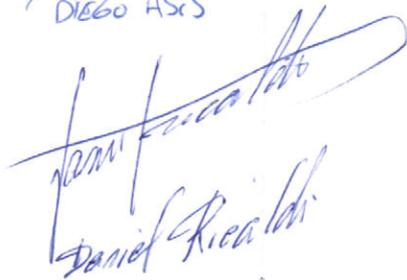 DIEGO ASIS
Daniel Ricaldi